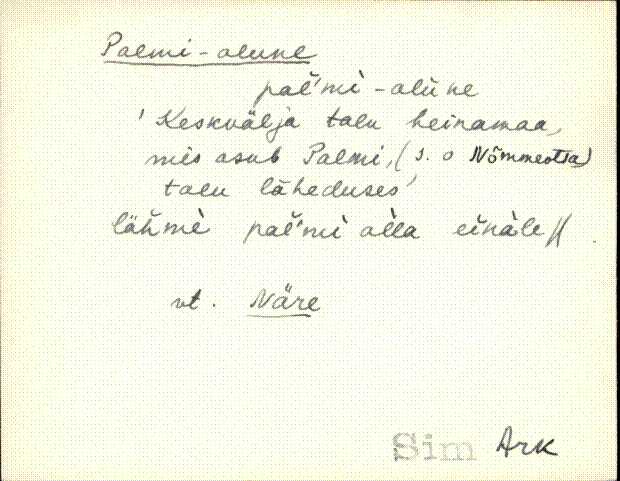 Palmi-alune
pal̆'mì -alŭne
'Keskvälja talu heinamaa,
mis asub Palmi, (s. o Nõmmeotsa)
talu läheduses'
läh̆mè pal̆'mì al̆la einäle //
vt. Näre
Sim Ark